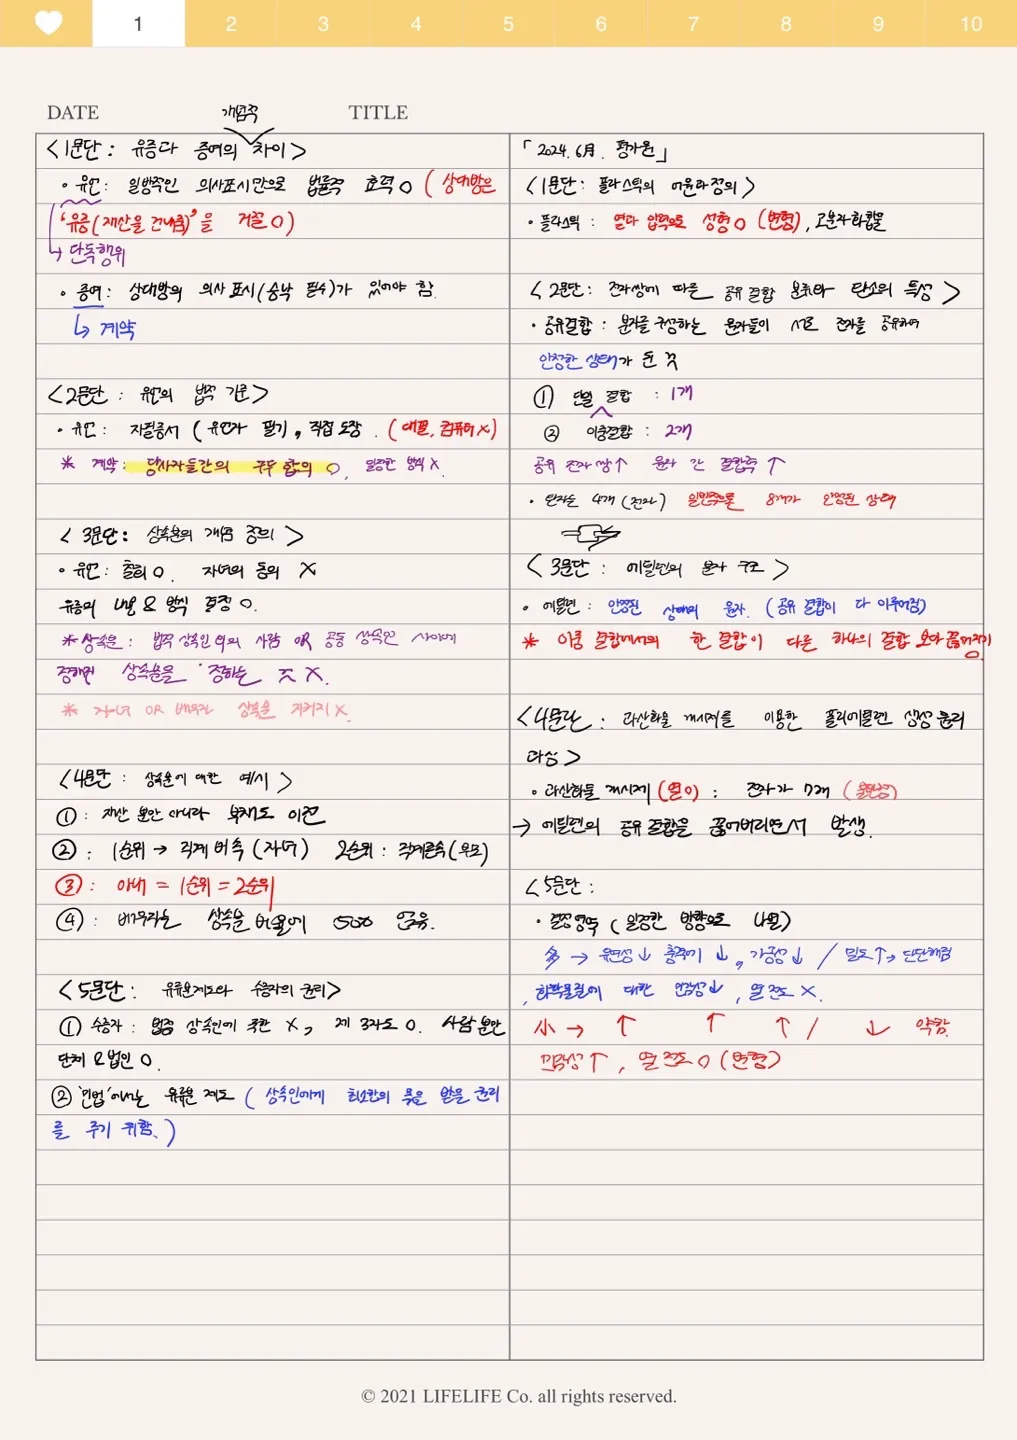 1 2 3 4 5 6 7 8 9 10
DATE 개념적 TITLE
<1문단 : 유증과 증여의 차이>
• 유언: 일방적인 의사표시만으로 법률적 효력 O ( 상대방은
'유증(재산을 건네줌)'을 거절 O)
↳ 단독행위
• 증여: 상대방의 의사 표시(승낙 필수)가 있어야 함.
↳ 계약
<2문단 : 유언의 법적 기준>
• 유언: 자필증서 (유언자 필기, 직접 도장. (대필, 컴퓨터 X)
* 계약: 당사자들간의 구두 합의 O, 일정한 방식 X.
< 3문단: 상속분의 개념 정의 >
• 유언: 철회 O. 자녀의 동의 X
유증의 내용 & 방식 결정 O.
* 상속분: 법적 상속인 외의 사람 OR 공동 상속인 사이에
정해진 상속분을 정하는 것 X.
* 자녀 OR 배우자 상속분 지켜지 X.
<4문단 : 상속분에 대한 예시 >
① : 재산 뿐만 아니라 부채도 이전
② : 1순위 → 직계 비속 (자녀) 2순위 : 직계존속(부모)
③ : 아내 = 1순위 = 2순위
④ : 배우자는 상속분 비율에 50%
<5문단 : 유류분제도와 수증자의 권리>
① 수증자 : 법정 상속인에 국한 X, 제 3자도 O. 사람 뿐만
단체 & 법인 O.
② '민법'에서는 유류분 제도 ( 상속인에게 최소한의 몫을 받을 권리
를 주기 위함.)
「2024. 6月. 평가원」
<1문단 : 플라스틱의 어원과 정의>
• 플라스틱 : 열과 압력으로 성형 O (변형), 고분자화합물
<2문단 : 전자쌍에 따른 공유 결합 분류와 탄소의 특성 >
• 공유결합 : 분자를 구성하는 원자들이 서로 전자를 공유하여
안정한 상태가 된 것
① 단일 결합 : 1개
② 이중결합 : 2개
공유 전자쌍↑ 원자 간 결합측 ↑
• 탄소는 4개 (전자) 일반적으로 8개가 안정된 상태
<3문단 : 에틸렌의 분자 구조 >
• 에틸렌 : 안정된 상태의 원자. (공유 결합이 다 이루어짐)
* 이중 결합에서의 한 결합이 다른 하나의 결합 보다 끊어지기
O.
<4문단 : 과산화물 개시제를 이용한 폴리에틸렌 생성 원리
과정 >
• 과산화물 개시제 (열 O) : 전자가 7개 (불안정)
→ 에틸렌의 공유 결합을 끊어버리면서 발생.
<5문단 :
• 결정영역 (일정한 방향으로 나열)
多 → 유연성↓ 충격에 ↓, 가공성↓ / 밀도↑, 단단해짐
, 화학물질에 대한 안정성↓, 열 전도 X.
小 → ↑ ↑ ↑ / ↓ 약함.
안정성↑, 열 전도 O (변형)
© 2021 LIFELIFE Co. all rights reserved.